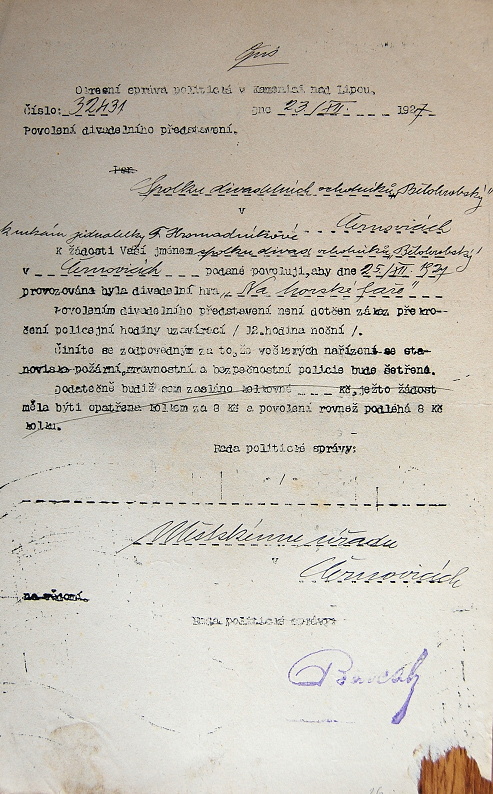 Opis
Okresní správa politická v Kamenici nad Lipou,
Číslo: 32431 dne 23/XII. 1927
Povolení divadelního představení.
Pan
Spolku divadelních ochotníků „Bělohrobský"
v Černovicích
k rukám jednatelky F. Hromádníkové
K žádosti Vaší jménem spolku divad. ochotníků „Bělohrobský"
v Černovicích podané povoluji, aby dne 25/XII. 1927
provozována byla divadelní hra „Na horské faře"
Povolením divadelního představení není dotčen zákaz překro-
čení policejní hodiny uzavírací / 12. hodina noční /.
Činíte se zodpovědným za to, že veškerých nařízení se sta-
noviska požární, mravnostní a bezpečnostní policie bude šetřeno.
Dodatečně budiž sem zasláno kolkovné Kč, ježto žádost
měla býti opatřena kolkem za 8 Kč a povolení rovněž podléhá 8 Kč
kolku.
Rada politické správy:
Městskému úřadu
v Černovicích
na vědomí.
Rada politické správy: